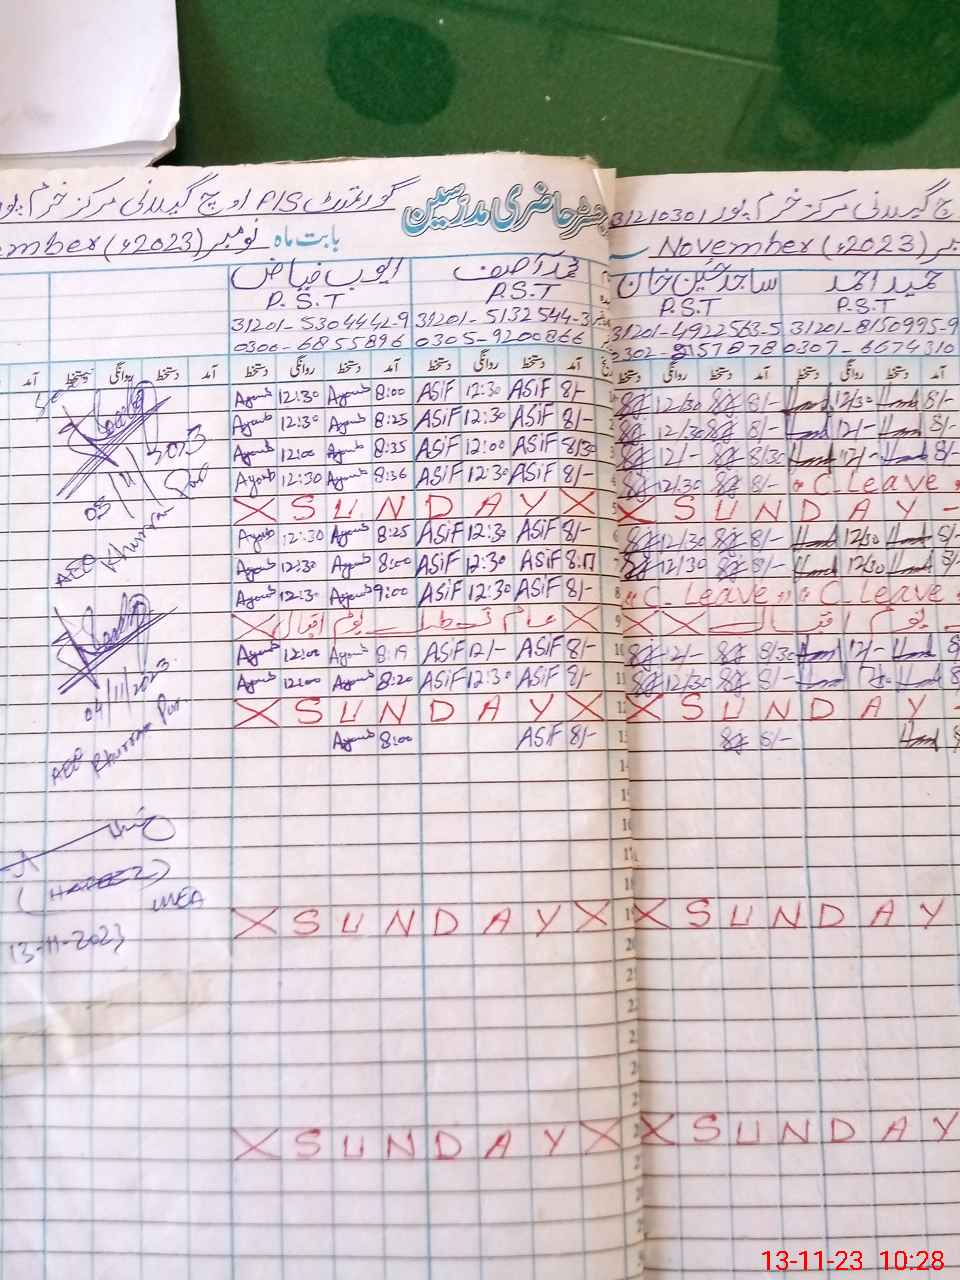 رجسٹر حاضری مدرسین
گورنمنٹ P/S اوچ گیلانی مرکز خرم پور
31210301
چ گیلانی مرکز خرم پور
بابت ماہ
نومبر (2023ء) mber
November (2023ء)
ایوب فیاض
محمد آصف
ساجد حسین خان
حمید احمد
P.S.T
P.S.T
P.S.T
P.S.T
31201-5304442-9
31201-5132544-3
31201-4922563-5
31201-8150995-9
0306-6855896
0305-9200866
0302-8157878
0307-6674310
آمد دستخط روانگی دستخط آمد دستخط روانگی دستخط آمد
دستخط روانگی دستخط آمد دستخط روانگی دستخط آمد
Ayoub 12:30 Ayoub 8:00 ASiF 12:30 ASiF 8/- 12/30 8/- 12/30 8/-
Ayoub 12:30 Ayoub 8:25 ASiF 12:30 ASiF 8/- 2 12/30 8/- 12/- 8/-
Ayoub 12:00 Ayoub 8:35 ASiF 12:00 ASiF 8/30 3 12/- 8/30 12/- 8/-
Ayoub 12:30 Ayoub 8:36 ASiF 12:30 ASiF 8/- 12/30 8/- " C. Leave "
X S U N D A Y X 5 X S U N D A Y -
Ayoub 12:30 Ayoub 8:25 ASiF 12:30 ASiF 8/- 6 12/30 8/- 12/30 8/-
Ayoub 12:30 Ayoub 8:00 ASiF 12:30 ASiF 7 12/30 8/- 12/30
Ayoub 12:30 Ayoub 9:00 ASiF 12:30 ASiF 8/- 8 " C. Leave " " C. Leave "
X عام تعطیل یوم اقبال X 9 X X یوم اقبال
Ayoub 12:00 Ayoub 8:19 ASiF 12/- ASiF 8/- 10 12/- 8/30 12/-
Ayoub 12:00 Ayoub 8:20 ASiF 12:30 ASiF 8/- 11 12/30 8/-
X S U N D A Y X 12 X S U N D A Y -
Ayoub 8:00 ASiF 8/- 13 8/-
14
15
16
17
18
X S U N D A Y X 19 X S U N D A Y
20
21
22
X S U N D A Y X X S U N D A Y
03/11/2023
AEO Khurram Pur
04/11/2023
AEO Khurram Pur
MEA
13-11-2023
13-11-23 10:28